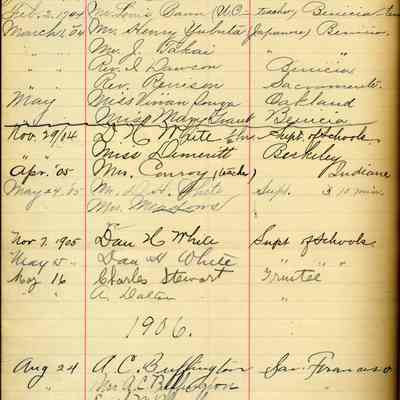 Feb. 2. 1904 Mr. Louis Dann (U.C. - teacher) Benicia
March 1 '04 Mr. Henry Yubita (Japanese) Benicia
" " Mr. J. Takai " "
Rev. I Dawson Benicia
Rev. Renison Sacramento.
May Miss Vivian Oakland
Miss Mary Grant Benicia
Nov. 29/14 D. H. White Supt. of Schools
" " Miss Dimmitt Berkeley
Apr. '05 Mrs. Conroy (teacher) Indiana
May 24, 05 Mr. D. H. White Supt. 10 min.
Mrs. Meadows "
Nov 7. 1905 Dan H White Supt of Schools
May 15 Dan H White " " "
May 16 Charles Stewart Trustee
" " A. Dalton "
1906.
Aug 24 A. C. Buffington San Francisco
" Mrs A. C. Buffington "